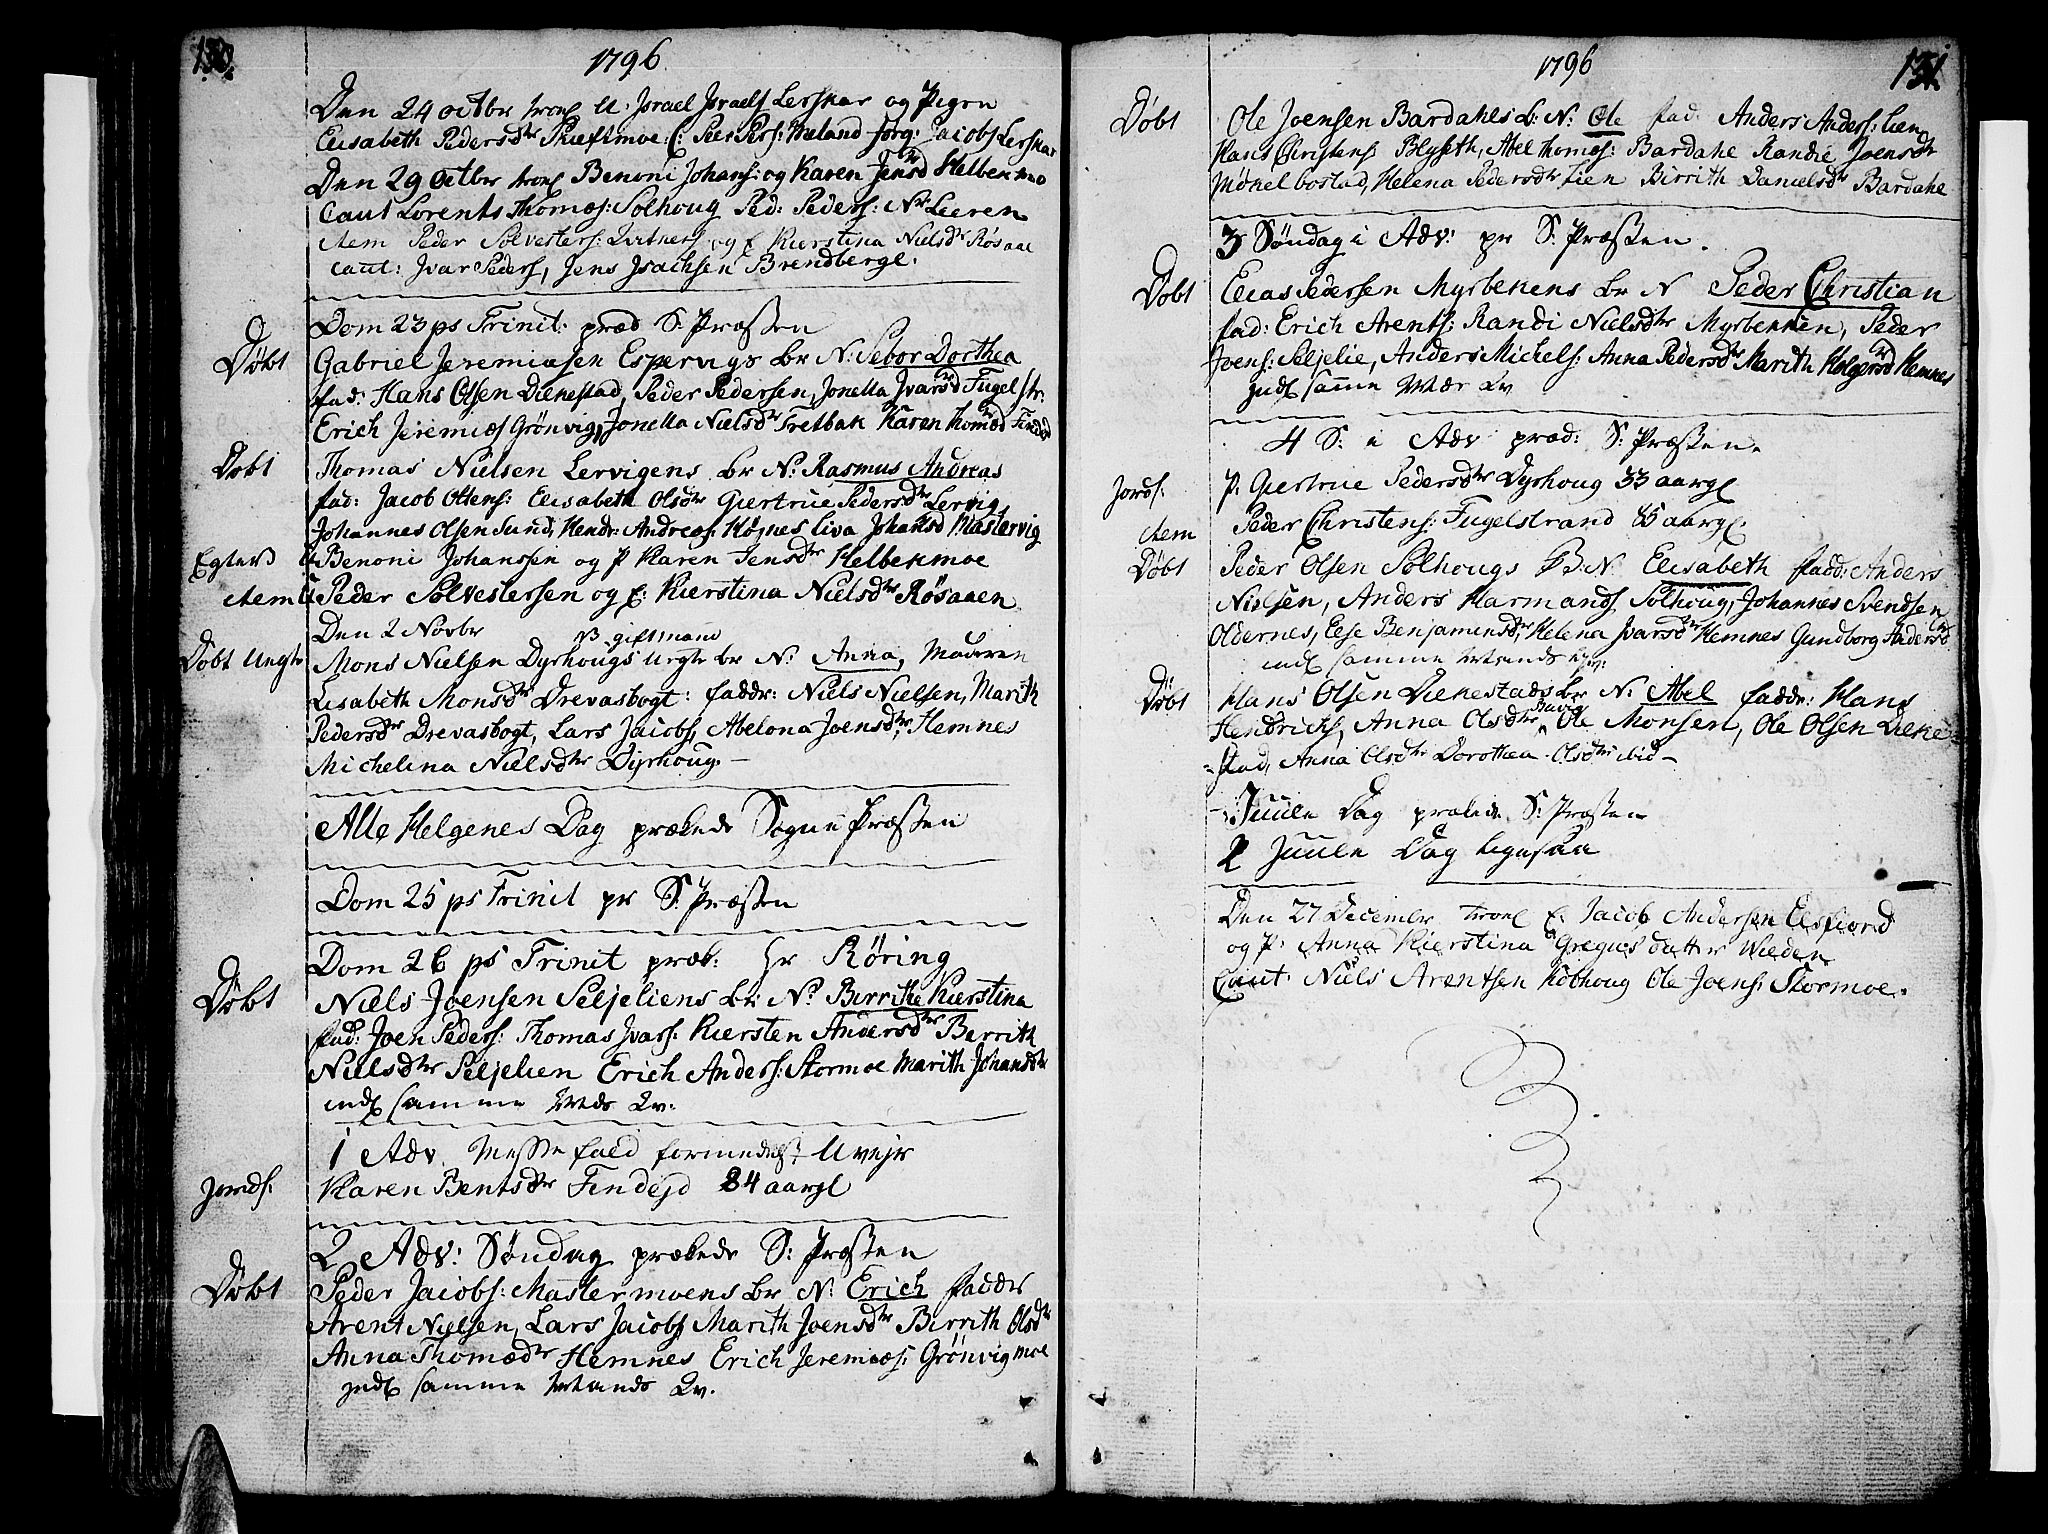 130.
1796.
Den 24 octbr trol U: Israel Israels Lerskar og Pigen
Elisabeth Pedersdtr C: Peer Pers: Jorg: Jacobs Lerskar
Den 29 Octbr trol Benoni Johans: og Karen Jensdtr Helbekmo
Caut Lorents Thomæs: Solhoug Ped: Peders: Nr: Leeren
item Peder Sølvesters: og E Kierstina Nielsdtr Røsaae
caut: Ivar Peders, Jens Isachsen Brendbergl.
Dom 23 ps Trinit: præd S: Præsten
Døbt Gabriel Jeremiæsen Espervigs br N: Sebor Dorthea
fad: Hans Olsen Diekestad, Peder Pedersen, Jonetta Ivarsdtr Fugelstr:
Erich Jeremiæs Grönvig, Jonetta Nielsdtr Tretbak Karen Thomædtr Findejd
Døbt Thomas Nielsen Lervigens br N: Rasmus Andreas
fad: Jacob Ottens: Elisabeth Olsdtr Giertrue Pedersdtr Lervig,
Johannes Olsen Sund, Hendr: Andreæs: Højnes Liva Johansd Mastervig
Egteb Benoni Johanssen og P Karen Jensdtr Helbekmoe
item Peder Sølvestersen og E: Kierstina Nielsdtr Røsaaen
Den 2 Novbr
B giftmand
Døbt Uegte Mons Nielsen Dyrhougs uegte br N: Anna, Moderen
Lisabeth Monsdtr Drevasbogt: faddr: Niels Nielsen, Marith
Pedersdtr Drevasbogt, Lars Jacobs, Abelona Joensdtr, Hemnes
Michelina Nielsdtr Dyrhoug. –
Alle Helgenes Dag prækede Sogne Præsten
Dom 25 ps Trinit pr S: Præsten
Dom 26 ps Trinit præk: Hr Røring
Døbt Niels Joensen Seljeliens br: N: Birrithe Kierstina
fad: Joen Peders: Thomas Ivars: Kiersten Andersdtr Berrith
Nielsdtr Seljelien Erich Anders: Stormoe Marith Johansdtr
indl samme Qv:
1 Adv. Messe fald formedelst Uvejr
Jords. Karen Bentsdtr Findejd 84 aargl
2 Adv: Søndag prækede S: Præsten
Døbt Peder Jacobs: Mastermoens br N: Erich faddr
Arent Nielsen, Lars Jacobs Marith Joensdtr Birrith Olsdtr
Anna Thomædtr Hemnes Erich Jeremiæs: Grønvigmoe
indl samme Qv.
1796
131.
Døbt Ole Joensen Bardahls b: N: Ole fad: Anders Anders: Lien
Hans Christens: Blyseth, Abel Thomæs: Bardahl Randie Joensdtr
Møkelbostad, Helena Pedersdtr Lien Birrith Danielsdtr Bardahl
3 Søndag i Adv: pr S: Præsten.
Døbt Elias Pedersen Myrbekens br N Peder Christian
fad: Erich Arents: Randi Nielsdtr Myrbekken, Peder
Joens: Seljelie, Anders Michels: Anna Pedersdtr Marith Holgersdtr Hemnes
indl samme Qv
4 S: i Adv præd: S: Præsten.
Jords. P: Giertrue Pedersdtr Dyrhoug 33 aargl
item Peder Christens: Fugelstrand 85 aargl.
Døbt Peder Olsen Solhougs B: N: Elisabeth fadd: Anders
Nielsen, Anders Harmands Solhoug, Johannes Svendsen
Oldernes, Else Benjaminsdtr, Helena Ivarsdtr Hemnes Gundborg Andersd
indl samme
Døbt Hans Olsen Diekestads br N: Abel faddr: Hans
Hendrichs, Anna Olsdtr Ole Monsen, Ole Olsen Dieke=
=stad, Anna Olsdtr Dorothea Olsdtr ibid –
Juule Dag prækede S: Præsten
2 Juule Dag ligesaa
Den 27 December trol E: Jacob Andersen Elsfiord
og P: Anna Kierstina Gregus datter Wieden
Caut Niels Arentsen Kobhoug Ole Joens: Stormoe.